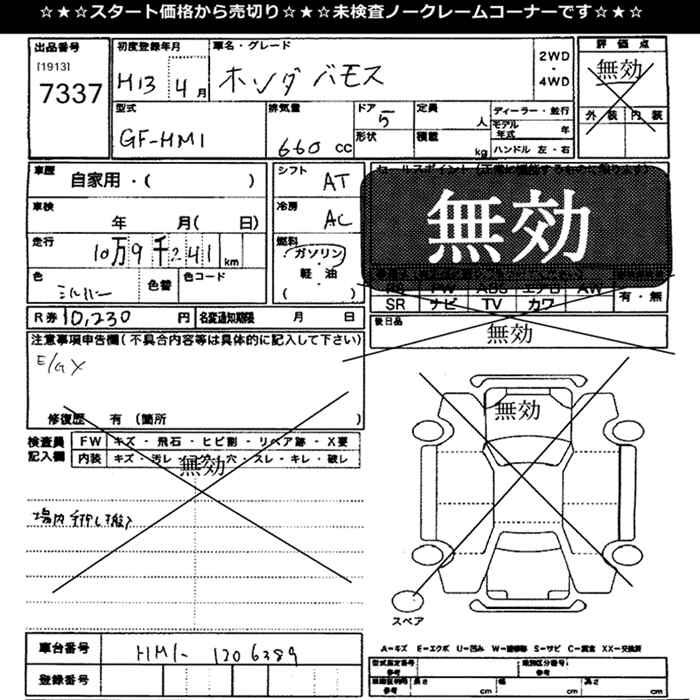 ☆★☆スタート価格から売切り☆★☆未検査ノークレームコーナーです☆★☆
出品番号
[1913]
7337
初度登録年月
H13 4月
車名・グレード
ホンダ バモス
2WD
・
4WD
評価点
無効
外装 内装
型式
GF-HM1
排気量
660 cc
ドア
5
形状
定員
人
積載
kg
ディーラー・並行
モデル
年式
年
ハンドル 左・右
車歴
自家用・( )
車検
年 月( 日)
走行
10万9千241km
色
シルバー
色替
色コード
シフト
AT
冷房
AC
燃料
ガソリン
・
軽油
( )
無効
SR ナビ TV カワ
有・無
R券 10,230 円
名変通知期限 月 日
後日品
無効
注意事項申告欄(不具合内容等は具体的に記入して下さい)
E/GX
修復歴 有(箇所 )
検査員
記入欄
FW キズ・飛石・ヒビ割・リペア跡・X要
内装 キズ・汚レ・コゲ・穴・スレ・キレ・破レ
無効
場内手押し搬入
無効
スペア
A=キズ E=エクボ U=凹み W=補修跡 S=サビ C=腐食 XX=交換済
車台番号
HM1-1206389
登録番号
型式指定番号
参考
類別区分番号
参考
長さ cm 幅 cm 高さ cm